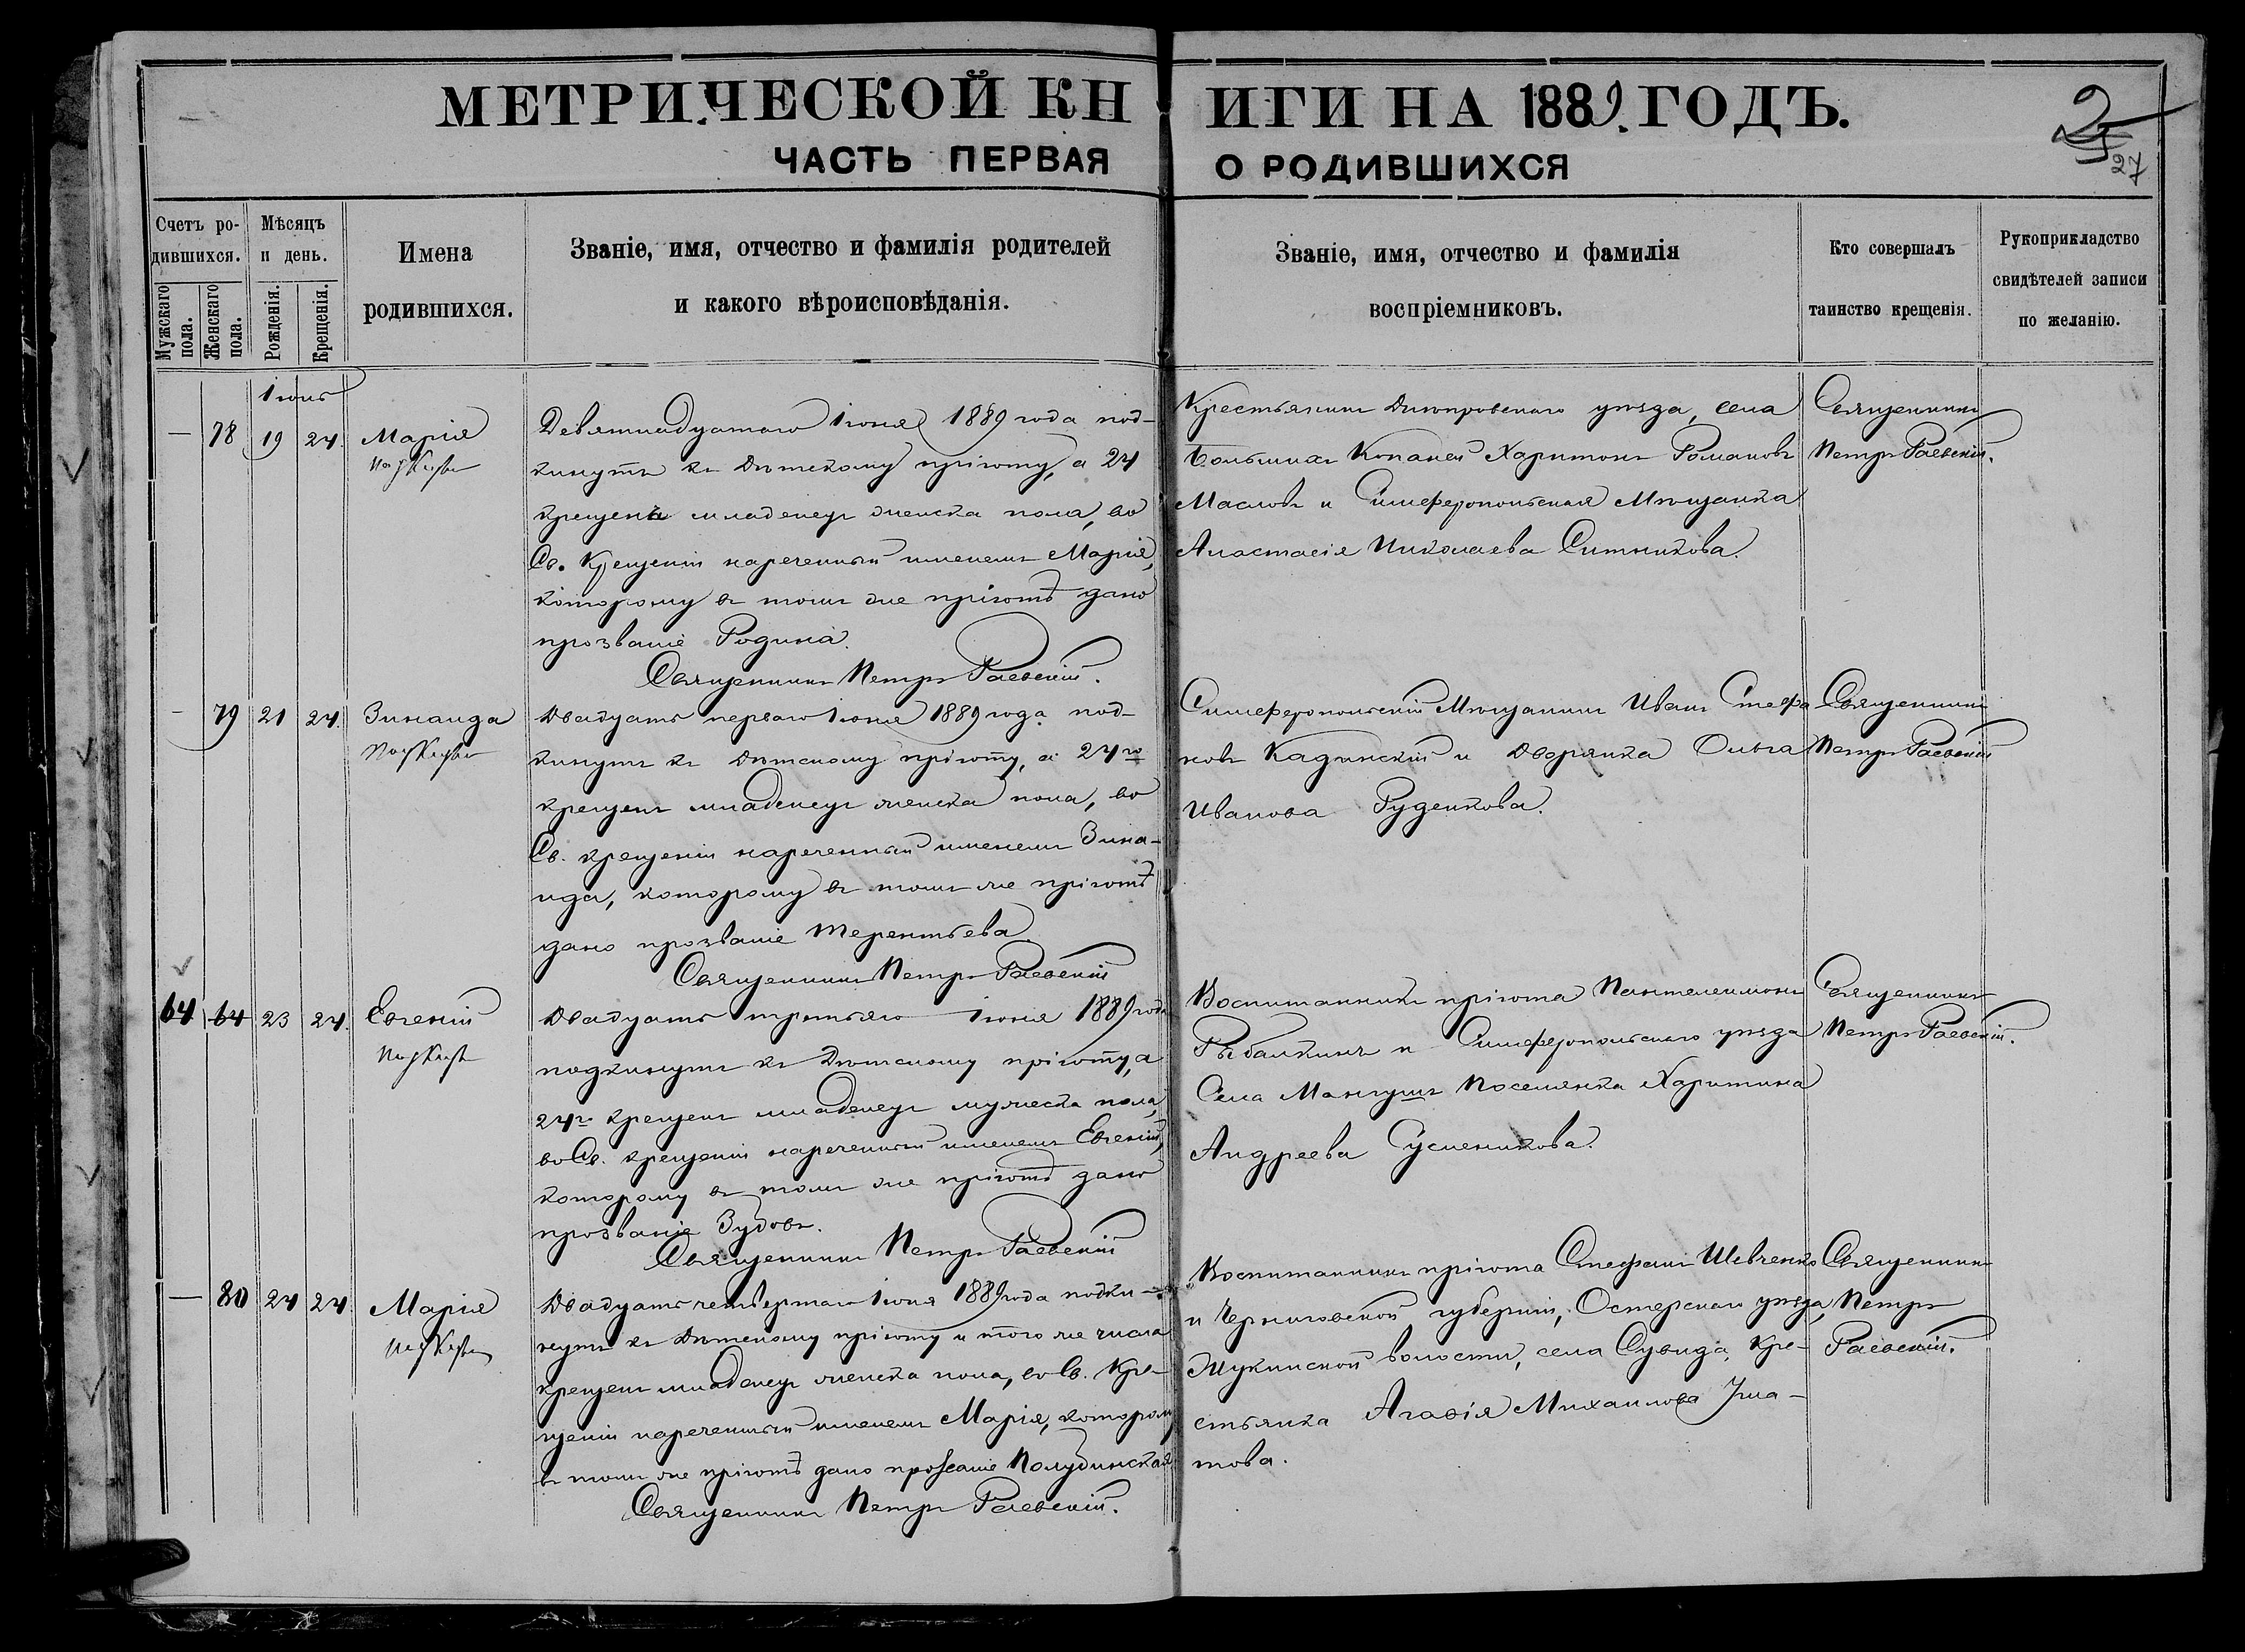 МЕТРИЧЕСКОЙ КНИГИ НА 1889 ГОДЪ.
ЧАСТЬ ПЕРВАЯ О РОДИВШИХСЯ
27
Счетъ ро-
дившихся.
Мужскаго пола.
Женскаго пола.
Мѣсяцъ
и день.
Рожденія.
Крещенія.
Имена
родившихся.
Званіе, имя, отчество и фамилія родителей
и какого вѣроисповѣданія.
Званіе, имя, отчество и фамилія
воспріемниковъ.
Кто совершалъ
таинство крещенія.
Рукоприкладство
свидѣтелей записи
по желанію.
Іюнь
— 78 19 24. Марія
Девятнадцатаго Іюня 1889 года под-
кинутъ къ Дѣтскому пріюту, а 24
крещенъ младенецъ женска пола, во
Св. Крещеніи нареченный именемъ Марія,
которому въ томъ же пріютѣ дано
прозваніе Родина.
Священникъ Петръ Раевскій.
Крестьянинъ Днѣпровскаго уѣзда, села
Большихъ Копаней Харитонъ Романовъ
Масловъ и Симферопольская Мѣщанка
Анастасія Николаева Ситникова.
Священникъ
Петръ Раевскій.
— 79 21 24. Зинаида
Двадцать перваго Іюня 1889 года под-
кинутъ къ Дѣтскому пріюту, а 24го
крещенъ младенецъ женска пола, во
Св. крещеніи нареченный именемъ Зина-
ида, которому въ томъ же пріютѣ
дано прозваніе Терентьева
Священникъ Петръ Раевскій
Симферопольскій Мѣщанинъ Иванъ Стефа
новъ Кадинскій и Дворянка Ольга
Иванова Руденкова.
Священникъ
Петръ Раевскій
64 64 23 24. Евгеній
Двадцать третьяго Іюня 1889 года
подкинутъ къ Дѣтскому пріюту, а
24го крещенъ младенецъ мужеска пола,
во Св. крещеніи нареченный именемъ Евгеній,
которому въ томъ же пріютѣ дано
прозваніе Зудовъ.
Священникъ Петръ Раевскій
Воспитанникъ пріюта Пантелеимонъ
Рыбалкинъ и Симферопольскаго уѣзда
Села Мангушъ Поселянка Харитина
Андреева
Священникъ
Петръ Раевскій.
— 80 24 24. Марія
Двадцать четвертаго Іюня 1889 года подки-
нутъ къ Дѣтскому пріюту и того же числа
крещенъ младенецъ женска пола, во Св. Кре-
щеніи нареченный именемъ Марія, которому
въ томъ же пріютѣ дано прозваніе Полудинская
Священникъ Петръ Раевскій.
Воспитанникъ пріюта Стефанъ Шевченко
и Черниговской губерніи, Остерскаго уѣзда,
Жукинской волости, села Сувида, Кре-
стьянка Агафія Михаилова
Священникъ
Петръ
Раевскій.